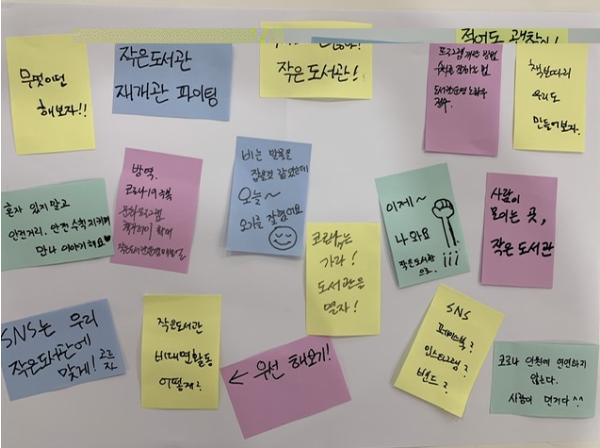 무엇이던
해보자!!
작은도서관
재개관 파이팅
작은도서관!
적어도 괜찮아!
책보따리
우리도
만들어보자.
혼자 있지 말고
안전거리, 안전수칙 지키며
만나 이야기해요♥
방역.
코로나19 극복
비는 마음은
오늘~
오기를 잘했어요
코로나는
가라!
도서관을
열자!
이제~
나와요
작은도서관
으로. !!!
사람이
모이는 곳,
작은 도서관
SNS는 우리
작은도서관에
맞게! 고르
자
작은도서관
비대면활동
어떻게?
← 우선 해보기!
SNS
페이스북?
인스타그램?
밴드?
코로나 안전에 연연하지
않는다.
사람이 먼저다^^